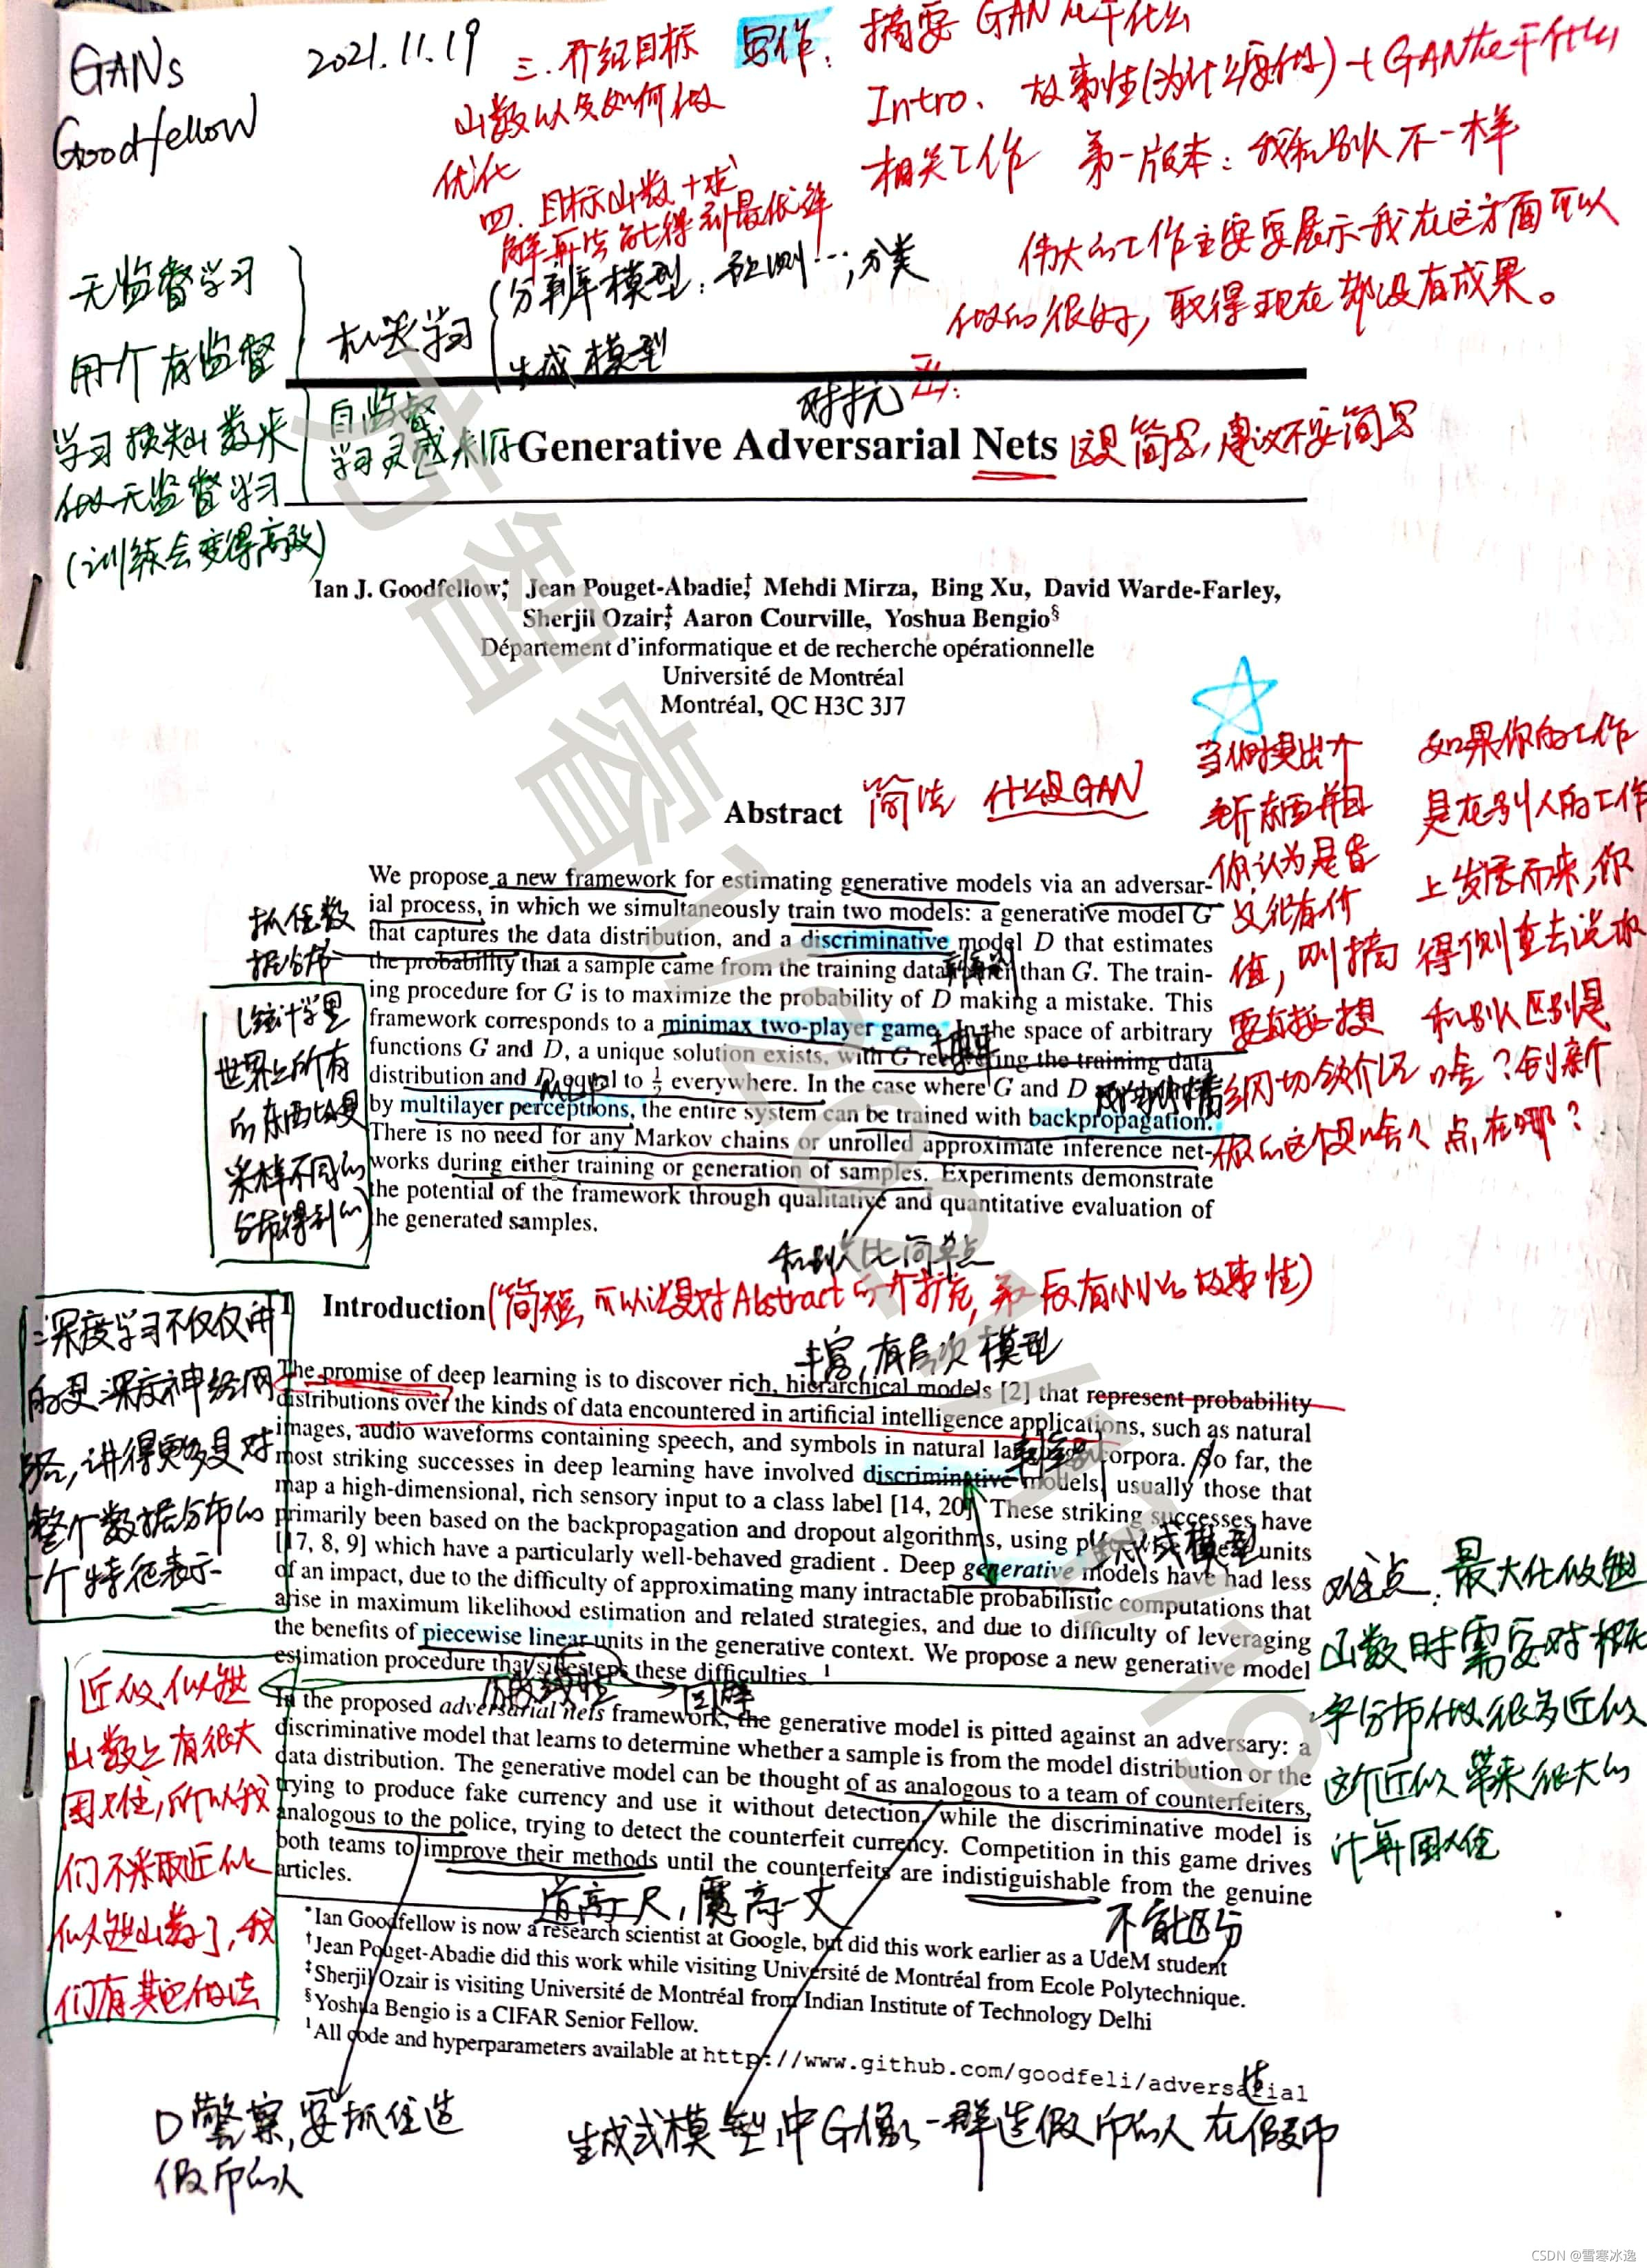 GANs
Goodfellow
2021.11.19
三.介绍目标
函数以及如何做
优化
四.目标函数+求
解算法能得到最优解
写作:
摘要 GAN在干什么
Intro、故事性(为什么要做)+GAN在干什么
相关工作 第一版本:我和别人不一样
伟大的工作主要要展示我在这方面可以
做的很好,取得现在都没有成果。
五:
无监督学习
用个有监督
学习损失函数来
做无监督学习
(训练会变得高效)
机器学习
分辨模型:预测…;分类
生成模型
自监督
学习灵感来源
对抗
Generative Adversarial Nets 这是简写,建议不要简写
Ian J. Goodfellow,* Jean Pouget-Abadie,† Mehdi Mirza, Bing Xu, David Warde-Farley,
Sherjil Ozair,‡ Aaron Courville, Yoshua Bengio§
Département d'informatique et de recherche opérationnelle
Université de Montréal
Montréal, QC H3C 3J7
Abstract 简洁 什么是GAN
We propose a new framework for estimating generative models via an adversar-
ial process, in which we simultaneously train two models: a generative model G
that captures the data distribution, and a discriminative model D that estimates
the probability that a sample came from the training data rather than G. The train-
ing procedure for G is to maximize the probability of D making a mistake. This
framework corresponds to a minimax two-player game. In the space of arbitrary
functions G and D, a unique solution exists, with G recovering the training data
distribution and D equal to ½ everywhere. In the case where G and D
by multilayer perceptrons, the entire system can be trained with backpropagation.
There is no need for any Markov chains or unrolled approximate inference net-
works during either training or generation of samples. Experiments demonstrate
the potential of the framework through qualitative and quantitative evaluation of
the generated samples.
抓住数
据分布
(统计学里
世界上的所有
的东西均是
采样不同的
分布得到的)
判别
MLP
当你提出个
新东西并且
你认为是意
义很有价
值,则摘
要直接提
纲切领介绍
你的这个是啥
如果你的工作
是在别人的工作
上发展而来,你
得侧重去说你
和别人区别是
啥?创新
点在哪?
和别人比简单点
1 Introduction (简短,可以说是对Abstract的个扩充,并具有小小的故事性)
丰富,有层次模型
The promise of deep learning is to discover rich, hierarchical models [2] that represent probability
distributions over the kinds of data encountered in artificial intelligence applications, such as natural
images, audio waveforms containing speech, and symbols in natural language corpora. So far, the
most striking successes in deep learning have involved discriminative models, usually those that
map a high-dimensional, rich sensory input to a class label [14, 20]. These striking successes have
primarily been based on the backpropagation and dropout algorithms, using piecewise linear units
[17, 8, 9] which have a particularly well-behaved gradient . Deep generative models have had less
of an impact, due to the difficulty of approximating many intractable probabilistic computations that
arise in maximum likelihood estimation and related strategies, and due to difficulty of leveraging
the benefits of piecewise linear units in the generative context. We propose a new generative model
estimation procedure that sidesteps these difficulties. 1
生成模型
深度学习不仅仅讲
的是深度神经网
络,讲得更多是对
整个数据分布的
一个特征表示
难点:最大化似然
函数时需要对概
率分布做很多近似
这个近似带来很大的
计算困难
近似似然
函数上有很大
困难,所以我
们不采取近似
似然函数了,我
们有其它做法
分段线性
回避
In the proposed adversarial nets framework, the generative model is pitted against an adversary: a
discriminative model that learns to determine whether a sample is from the model distribution or the
data distribution. The generative model can be thought of as analogous to a team of counterfeiters,
trying to produce fake currency and use it without detection, while the discriminative model is
analogous to the police, trying to detect the counterfeit currency. Competition in this game drives
both teams to improve their methods until the counterfeits are indistiguishable from the genuine
articles.
道高一尺,魔高一丈
不能区分
*Ian Goodfellow is now a research scientist at Google, but did this work earlier as a UdeM student
†Jean Pouget-Abadie did this work while visiting Université de Montréal from Ecole Polytechnique.
‡Sherjil Ozair is visiting Université de Montréal from Indian Institute of Technology Delhi
§Yoshua Bengio is a CIFAR Senior Fellow.
1All code and hyperparameters available at http://www.github.com/goodfeli/adversarial
D警察,要抓住造
假币的人
生成式模型中G像一群造假币的人在造假币
CSDN @雪寒冰逸